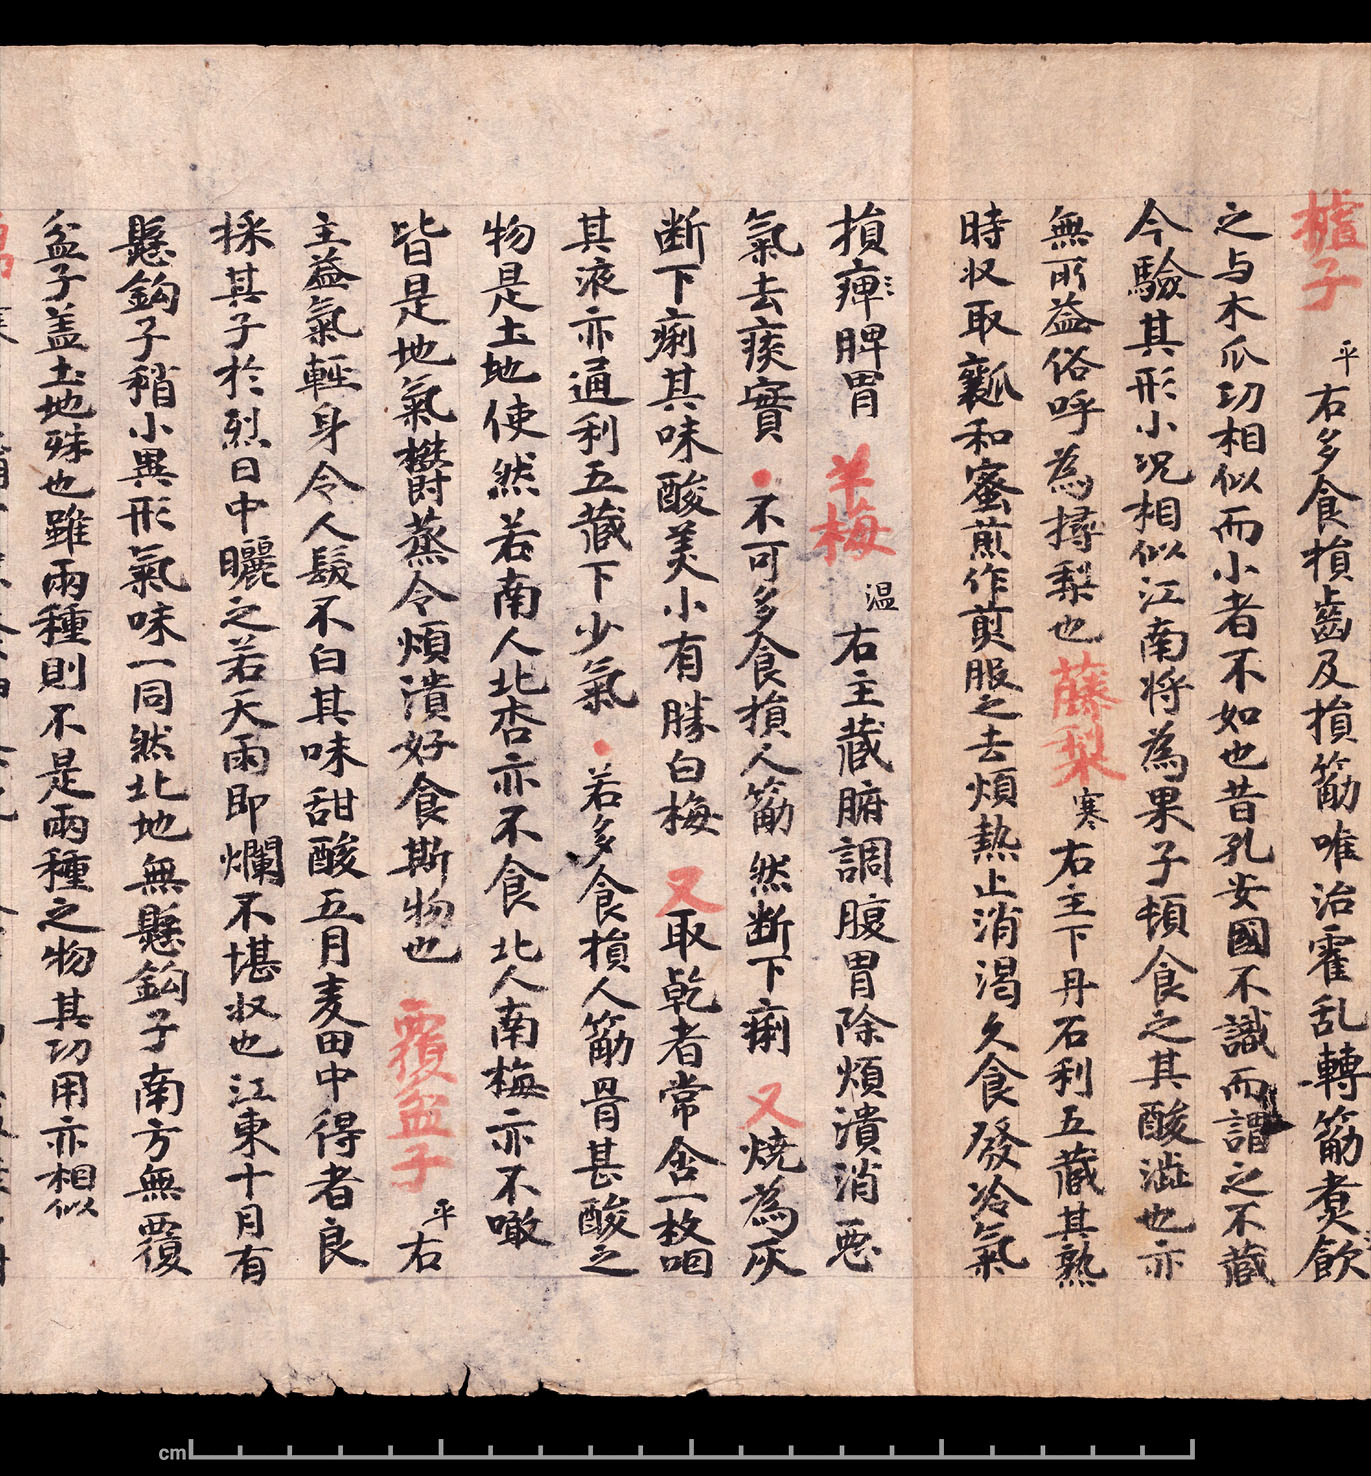 樝子 平 右多食損齒及損筋唯治霍乱轉筋煑飲
之与木瓜功相似而小者不如也昔孔安國不識而謂之不藏
今驗其形小況相似江南將為果子頓食之其酸澁也亦
無所益俗呼為㯳梨也藤梨 寒 右主下丹石利五藏其熟
時收取瓤和蜜煎作煎服之去煩熱止消渴久食發冷氣
損㾏脾胃 羊梅 温 右主藏腑調腹胃除煩潰消惡
氣去痰實 ・不可多食損人筋然斷下痢 又燒為灰
斷下痢其味酸美小有勝白梅 又取乾者常含一枚咽
其液亦通利五藏下少氣 ・若多食損人筋骨甚酸之
物是土地使然若南人北杏亦不食北人南梅亦不噉
皆是地氣欝蒸令煩潰好食斯物也 覆盆子 平 右
主益氣輕身令人髮不白其味甜酸五月麦田中得者良
採其子於烈日中曬之若天雨即爛不堪收也江東十月有
懸鈎子稍小異形氣味一同然北地無懸鈎子南方無覆
盆子盖土地殊也雖兩種則不是兩種之物其功用亦相似